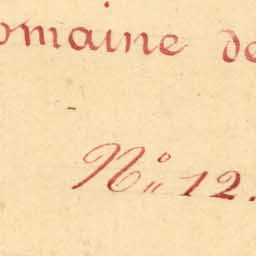 omaine de
Nº 12.